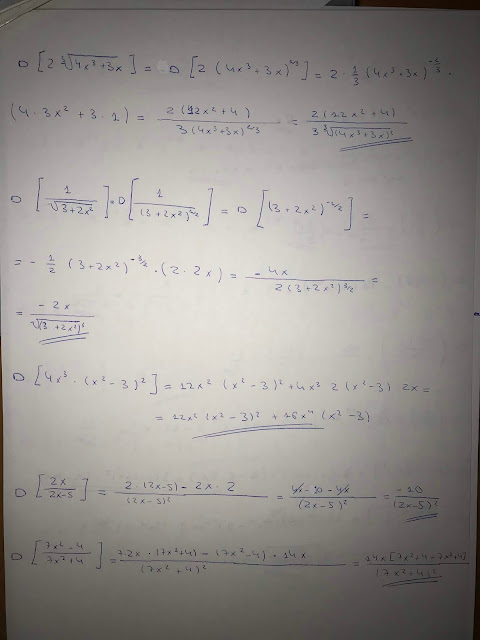 D [2 ∛(4x³+3x)] = D [2 (4x³+3x)^(1/3)] = 2 · 1/3 (4x³+3x)^(-2/3) ·
(4 · 3x² + 3 · 1) = 2(12x²+4) / 3(4x³+3x)^(2/3) = 2(12x²+4) / 3 ∛(4x³+3x)²
D [1/√(3+2x²)] = D [1/(3+2x²)^(1/2)] = D [(3+2x²)^(-1/2)] =
= - 1/2 (3+2x²)^(-3/2) · (2 · 2x) = -4x / 2(3+2x²)^(3/2) =
= -2x / √(3+2x²)³
D [4x³ · (x²-3)²] = 12x² (x²-3)² + 4x³ 2 (x²-3) 2x =
= 12x² (x²-3)² + 16x⁴ (x²-3)
D [2x / 2x-5] = 2 · (2x-5) - 2x · 2 / (2x-5)² = 4x - 10 - 4x / (2x-5)² = -10 / (2x-5)²
D [7x²-4 / 7x²+4] = 7·2x · (7x²+4) - (7x²-4) · 14x / (7x²+4)² = 14x [7x²+4-7x²+4] / (7x²+4)²